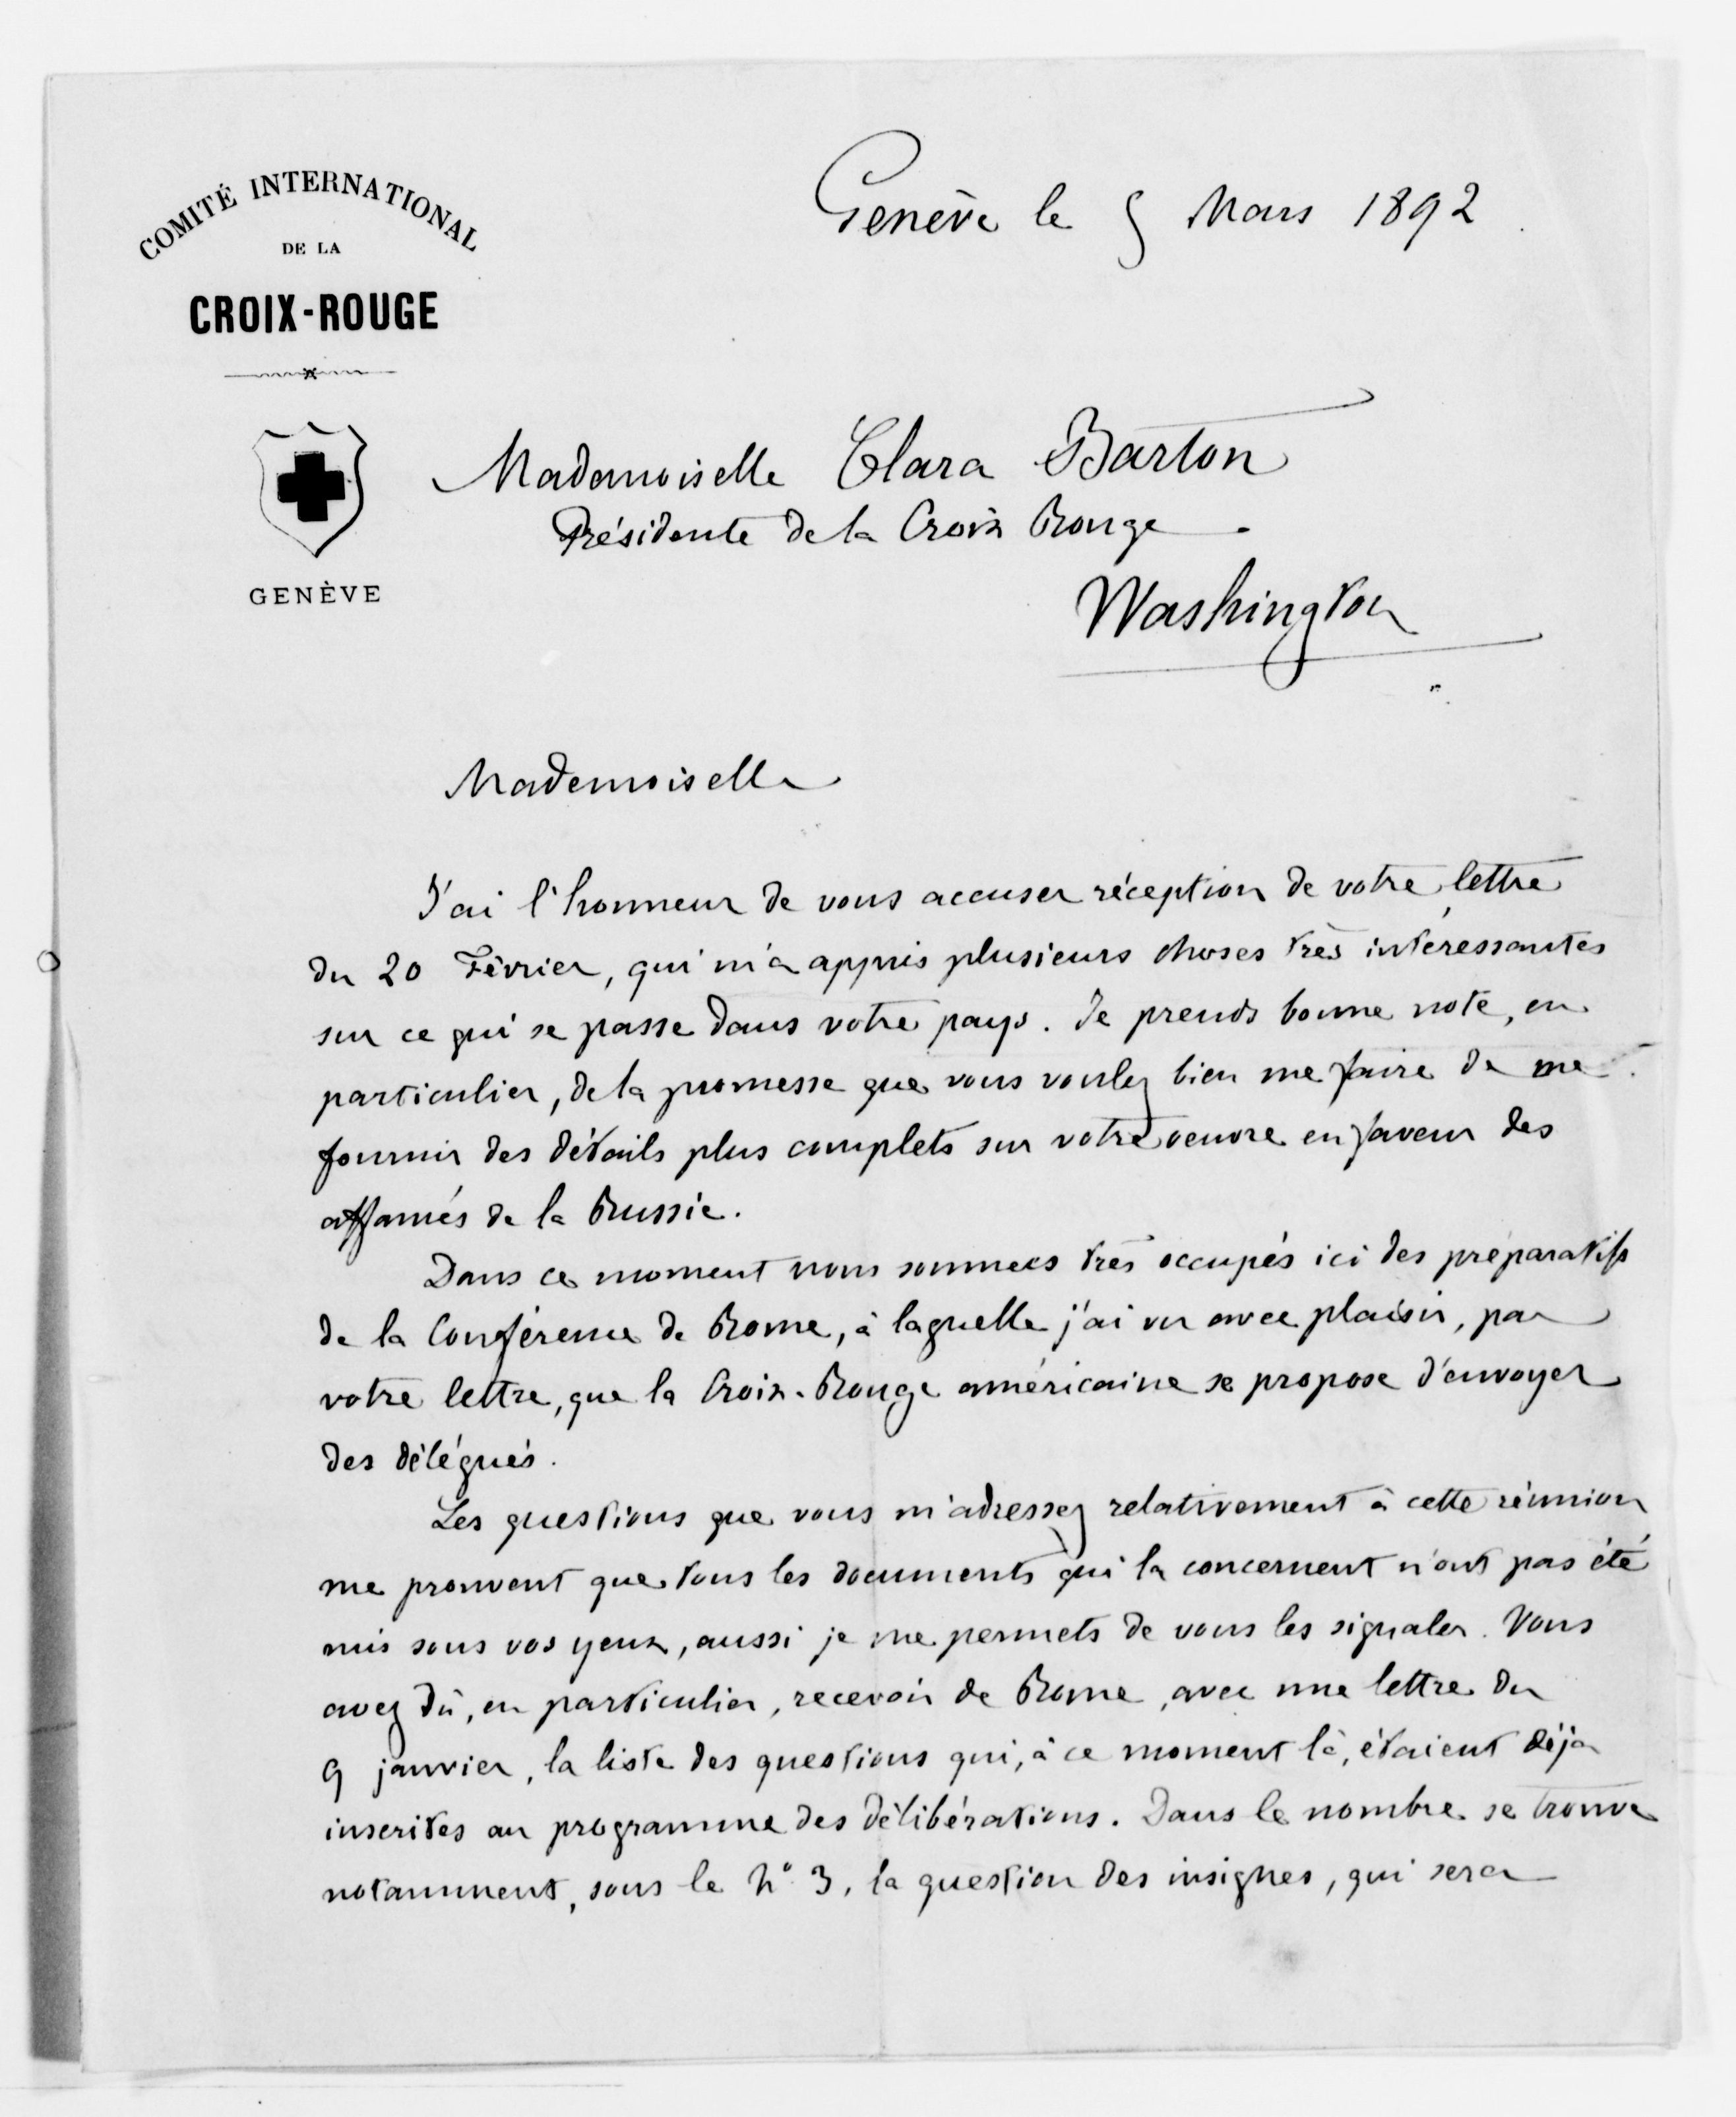 COMITÉ INTERNATIONAL
DE LA
CROIX-ROUGE
GENÈVE
Genève le 5 Mars 1892
Mademoiselle Clara Barton
Présidente de la Croix Rouge.
Washington
Mademoiselle
J'ai l'honneur de vous accuser réception de votre lettre
du 20 Février, qui m'a appris plusieurs choses très intéressantes
sur ce qui se passe dans votre pays. Je prends bonne note, en
particulier, de la promesse que vous voulez bien me faire de me
fournir des détails plus complets sur votre oeuvre en faveur des
affamés de la Russie.
Dans ce moment nous sommes très occupés ici des préparatifs
de la Conférence de Rome, à laquelle j'ai vu avec plaisir, par
votre lettre, que la Croix-Rouge américaine se propose d'envoyer
des délégués.
Les questions que vous m'adressez relativement à cette réunion
me prouvent que tous les documents qui la concernent n'ont pas été
mis sous vos yeux, aussi je me permets de vous les signaler. Vous
avez dû, en particulier, recevoir de Rome, avec une lettre du
9 janvier, la liste des questions qui, à ce moment là, étaient déja
inscrites au programme des délibérations. Dans le nombre se trouve
notamment, sous le No 3, la question des insignes, qui sera